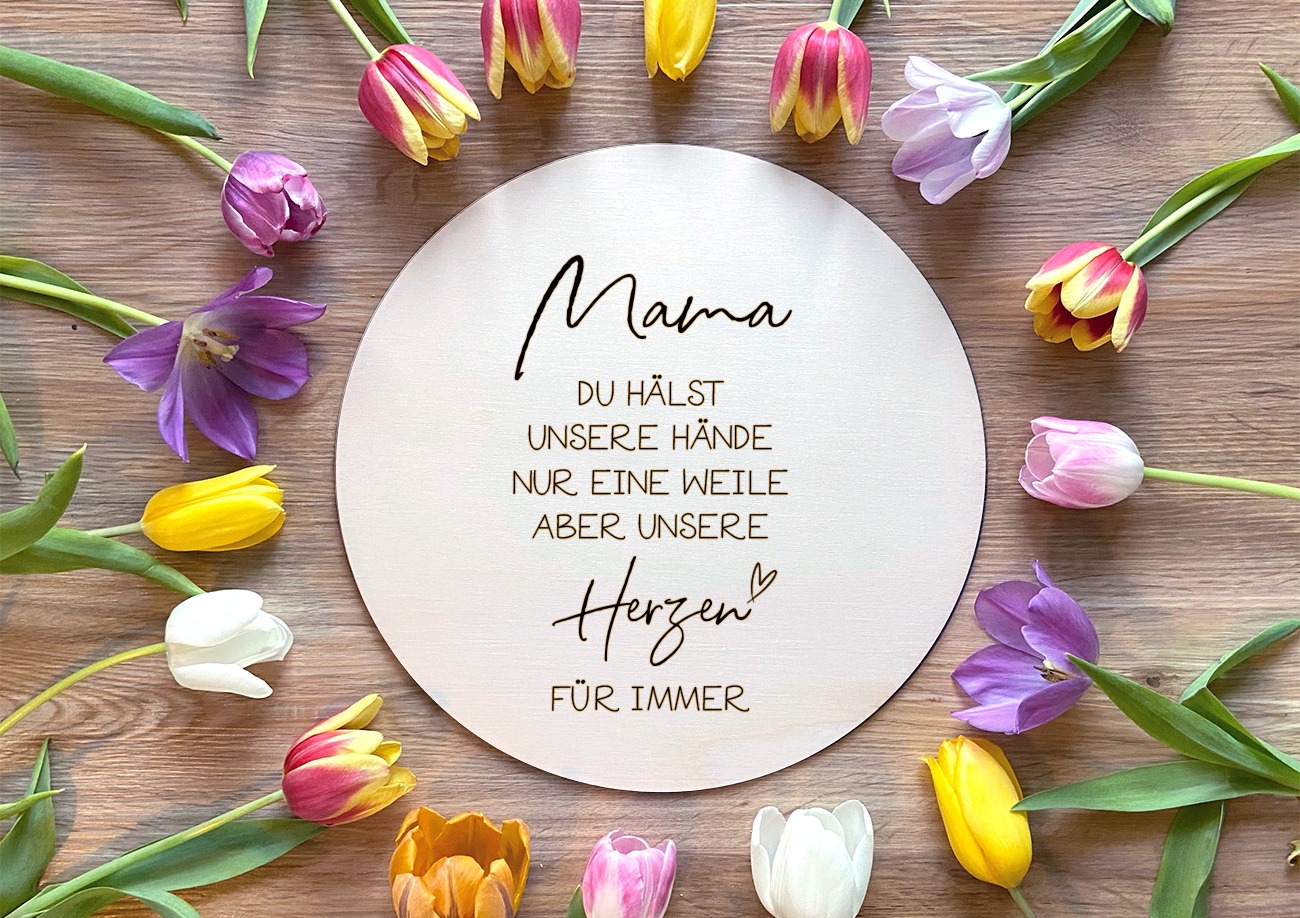 Mama
DU HÄLST
UNSERE HÄNDE
NUR EINE WEILE
ABER UNSERE
Herzen
FÜR IMMER